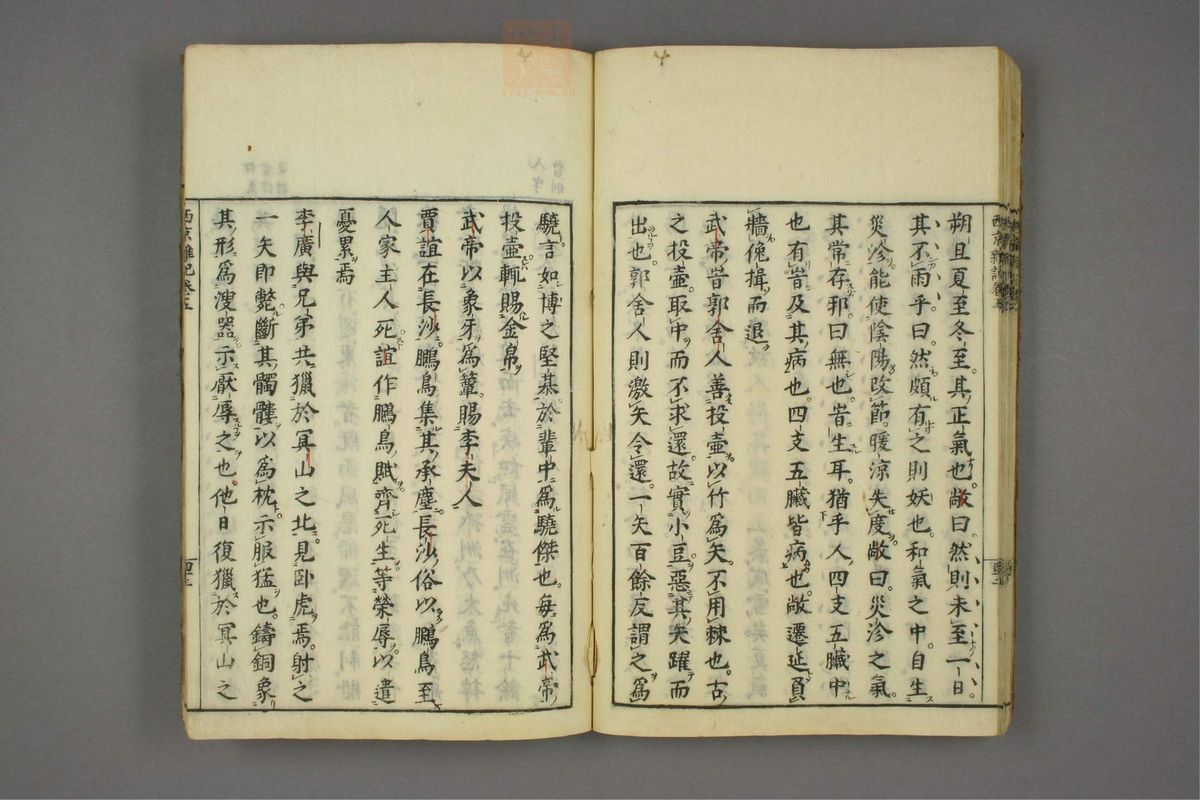 朔且夏至冬至其正氣也敞曰然則未至一日
其不雨乎曰然頗有之則妖也和氣之中自生
災沴能使陰陽改節暖涼失度敞曰災沴之氣
其常存邪曰無也旹生耳猶乎人四支五臓中
也有旹及其病也四支五臓皆病也敞遷延負
牆俛揖而退
武帝旹郭舍人善投壷以竹爲矢不用棘也古
之投壷取中而不求還故實小豆惡其矢躍而
出也郭舍人則激矢令還一矢百餘反謂之爲
驍言如博之堅棊於輩中爲驍傑也每爲武帝
投壷輒賜金帛
武帝以象牙爲簟賜李夫人
賈誼在長沙鵩鳥集其承塵長沙俗以鵩鳥至
人家主人死誼作鵩鳥賦齊死生等榮辱以遣
憂累焉
李廣與兄弟共獵於冥山之北見卧虎焉射之
一矢即斃斷其髑髏以爲枕示服猛也鑄銅象
其形爲溲器示厭辱之也他日復獵於冥山之
西京雜記卷五